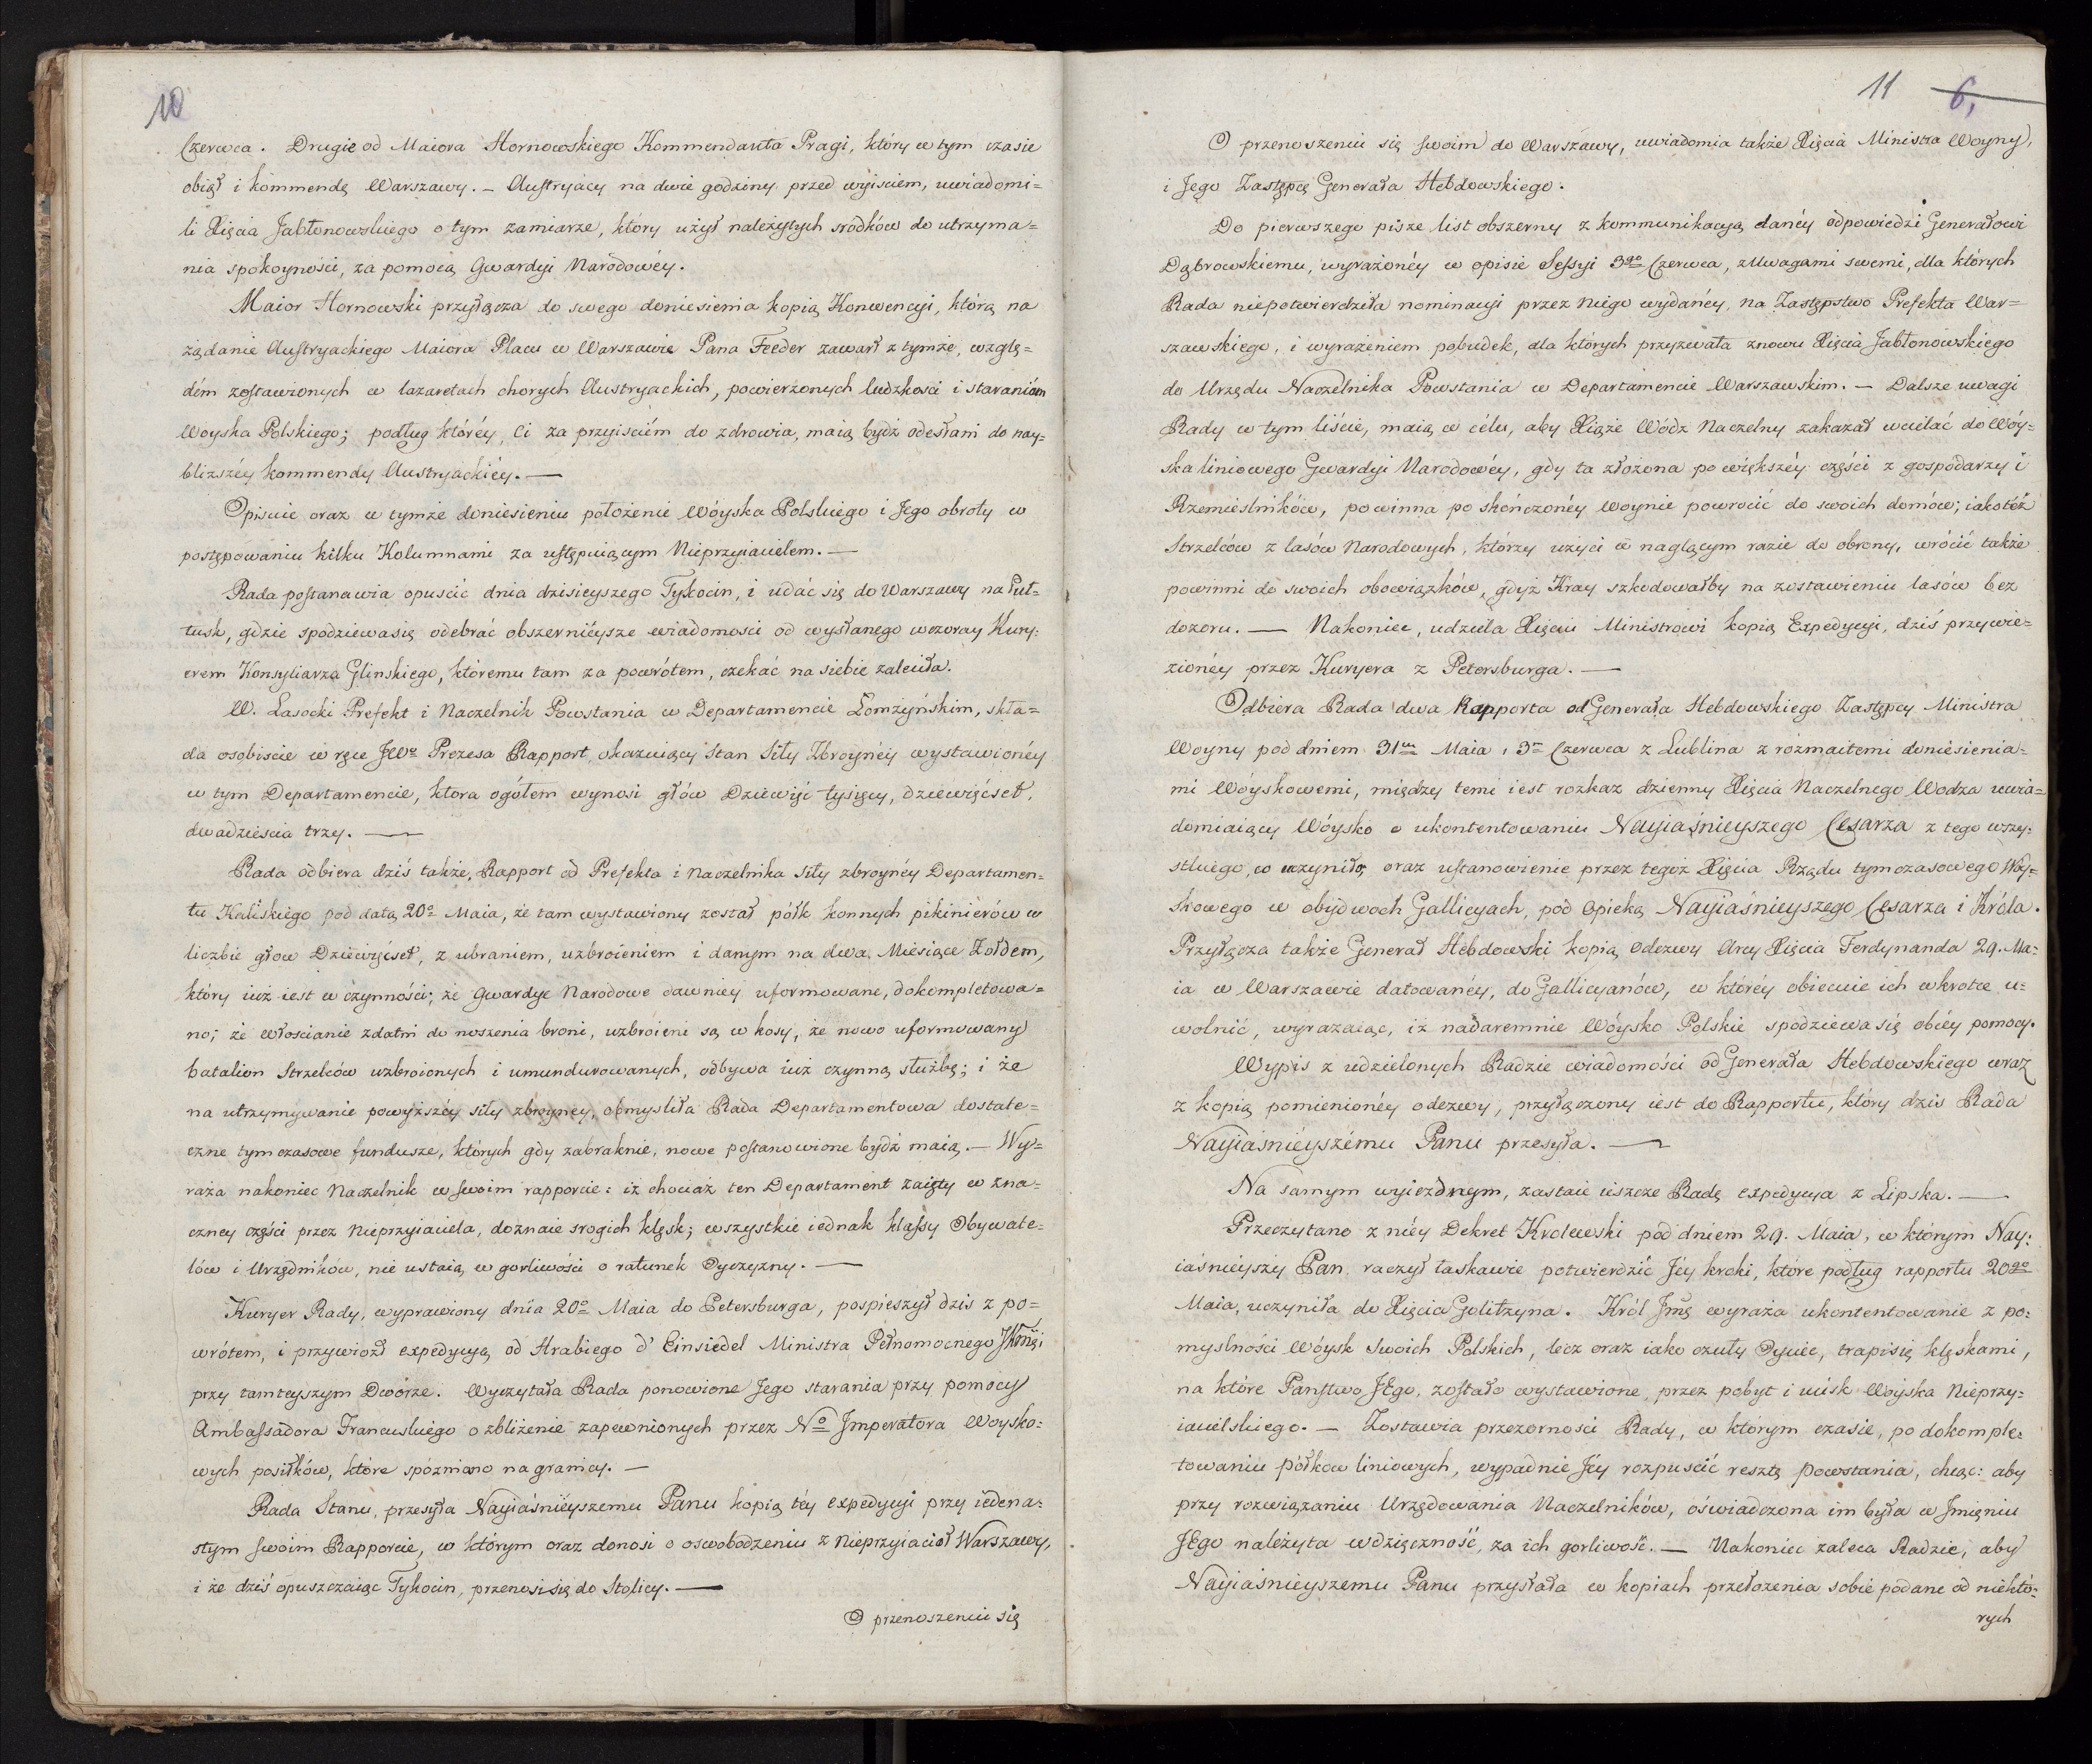 10
Czerwca. Drugie od Maiora Hornowskiego Kommendanta Pragi, który w tym czasie
obiął i kommendę Warszawy. – Austryacy na dwie godziny przed wyiściem, uwiadomi=
li Xięcia Jabłonowskiego o tym zamiarze, który użył należytych srodków do utrzyma=
nia spokoyności, za pomocą Gwardyi Narodowéy.
Maior Hornowski przyłącza do swego doniesienia kopią Konwencyi, którą na
żądanie Austryackiego Maiora Placu w Warszawie Pana Feeder zawarł z tymże, wzglę=
dem zostawionych w lazaretach chorych Austryackich, powierzonych ludzkosci i staraniom
Woyska Polskiego; podług któréy, Ci za przyiściém do zdrowia, maią bydź odesłani do nay=
bliższéy kommendy Austryackiéy. —
Opisuie oraz w tymże doniesieniu położenie Wóyska Polskiego i Jego obroty w
postępowaniu kilku Kolumnami za ustępuiącym Nieprzyiacielem. —
Rada postanawia opuścić dnia dzisieyszego Tykocin, i udać się do Warszawy na Puł=
tusk, gdzie spodziewa się odebrać obszernieysze wiadomosci od wysłanego wczoray Kury=
erem Konsyliarza Glinskiego, któremu tam za powrótem, czekać na siebie zaleciła.
W. Lasocki Prefekt i Naczelnik Powstania w Departamencie Łomżyńskim, skła=
da osobiscie w ręce JWo Prezesa Rapport, okazuiący Stan Siły Zbroynéy wystawionéy
w tym Departamencie, ktora ogółem wynosi głów Dziewięć tysięcy, dziewięćset,
dwadzieścia trzy. —
Rada odbiera dziś także, Rapport od Prefekta i Naczelnika siły zbroynéy Departamen=
tu Kaliskiego pod datą 20o Maia, że tam wystawiony został półk konnych pikinierów w
liczbie głow Dziewięćset, z ubraniem, uzbroieniem i danym na dwa Miesiące Żołdem,
który iuż iest w czynności; że Gwardye Narodowe dawniey uformowane, dokompletowa=
no; że włościanie zdatni do noszenia broni, uzbroieni są w kosy, że nowo uformowany
batalion Strzelców uzbroionych i umundurowanych, odbywa iuż czynną służbę; i że
na utrzymywanie powyższéy siły zbroyney, obmysliła Rada Departamentowa dostate=
czne tymczasowe fundusze, których gdy zabraknie, nowe postanowione bydź maią. — Wy=
raża nakoniec Naczelnik w swoim rapporcie: iż chociaż ten Departament zaięty w zna=
czney części przez Nieprzyiaciela, doznaie srogich klęsk; wszystkie iednak klassy Obywate=
lów i Urzędników, nie ustaią w gorliwości o ratunek Oyczyzny. —
Kuryer Rady, wyprawiony dnia 20o Maia do Petersburga, pospieszył dzis z po=
wrótem, i przywiozł expedycyą od Hrabiego d' Einsiedel Ministra Pełnomocnego JKMci
przy tamteyszym Dworze. Wyczytała Rada ponowione Jego starania przy pomocy
Ambassadora Francuskiego o zbliżenie zapewnionych przez No Imperatora Woysko=
wych posiłków, które spózniono na granicy. —
Rada Stanu, przesyła Nayiaśnieyszemu Panu kopią téy expedycyi przy iedena=
stym swoim Rapporcie, w którym oraz donosi o oswobodzeniu z Nieprzyiacioł Warszawy,
i że dziś opuszczaiąc Tykocin, przenosi się do Stolicy. —
O przenoszeniu się
11 6,
O przenoszeniu się swoim do Warszawy, uwiadomia także Xięcia Ministra Woyny,
i Jego Zastępcę Generała Hebdowskiego.
Do pierwszego pisze list obszerny z kommunikacyą danéy odpowiedzi Generałowi
Dąbrowskiemu, wyrażonéy w opisie Sessyi 3go Czerwca, z Uwagami swemi, dla których
Rada niepotwierdziła nominacyi przez Niego wydanéy, na Zastępstwo Prefekta War=
szawskiego, i wyrażeniem pobudek, dla których przyzwała znowu Xięcia Jabłonowskiego
do Urzędu Naczelnika Powstania w Departamencie Warszawskim. — Dalsze uwagi
Rady w tym liście, maią w célu, aby Xiąże Wódz Naczelny zakazał wcielać do Wóy=
ska liniowego Gwardyi Narodowéy, gdy ta złożona po większéy części z gospodarzy i
Rzemieslników, powinna po skończonéy woynie powrócić do swoich domów; iakotéż
Strzelców z lasów Narodowych, którzy użyci w naglącym razie do obrony, wrócić także
powinni do swoich obowiązków, gdyż Kray szkodowałby na zostawieniu lasów bez
dozoru. — Nakoniec, udziela Xięciu Ministrowi kopią Expedycyi, dziś przywie=
zionéy przez Kuryera z Petersburga. —
Odbiera Rada dwa Rapporta od Generała Hebdowskiego Zastępcy Ministra
Woyny pod dniem 31m Maia i 3m Czerwca z Lublina z rozmaitemi doniesienia=
mi Wóyskowemi, między temi iest rozkaz dzienny Xięcia Naczelnego Wodza uwia=
domiaiący Wóysko o ukontentowaniu Nayiaśnieyszego Cesarza z tego wszy=
stkiego, co uczyniło, oraz ustanowienie przez tegoż Xięcia Rządu tymczasowego Woy=
skowego w obydwoch Gallicyach, pod Opieką Nayiaśnieyszego Cesarza i Króla.
Przyłącza także Generał Hebdowski kopią Odezwy Arcy Xięcia Ferdynanda 29. Ma=
ia w Warszawie datowanéy, do Gallicyanów, w któréy obiecuie ich wkrotce u=
wolnić, wyrażaiąc, iż nadaremnie Wóysko Polskie spodziewa się obcéy pomocy.
Wypis z udzielonych Radzie wiadomości od Generała Hebdowskiego wraz
z kopią pomienionéy odezwy, przyłączony iest do Rapportu, który dzis Rada
Nayiaśniéyszému Panu przesyła. —
Na samym wyiezdnym, zastaie ieszcze Radę expedycya z Lipska. —
Przeczytano z niéy Dekret Krolewski pod dniem 29. Maia, w którym Nay=
iaśnieyszy Pan raczył łaskawie potwierdzić Jéy kroki, które podług rapportu 20go
Maia, uczyniła do Xięcia Golitzyna. Król Jmć wyraża ukontentowanie z po=
myslności Wóysk Swoich Polskich, lecz oraz iako czuły Oyciec, trapi się klęskami,
na które Państwo JEgo, zostało wystawione, przez pobyt i ucisk Woyska Nieprzy=
iacielskiego. — Zostawia przezorności Rady, w którym czasie, po dokomple=
towaniu półkow liniowych, wypadnie Jéy rozpuścić resztę Powstania, chcąc: aby
przy rozwiązaniu Urzędowania Naczelników, oświadczona im była w Imieniu
JEgo należyta wdzięczność, za ich gorliwość. — Nakoniec zaleca Radzie, aby
Nayiaśnieyszemu Panu przysłała w kopiach przełożenia sobie podane od niektó=
rych